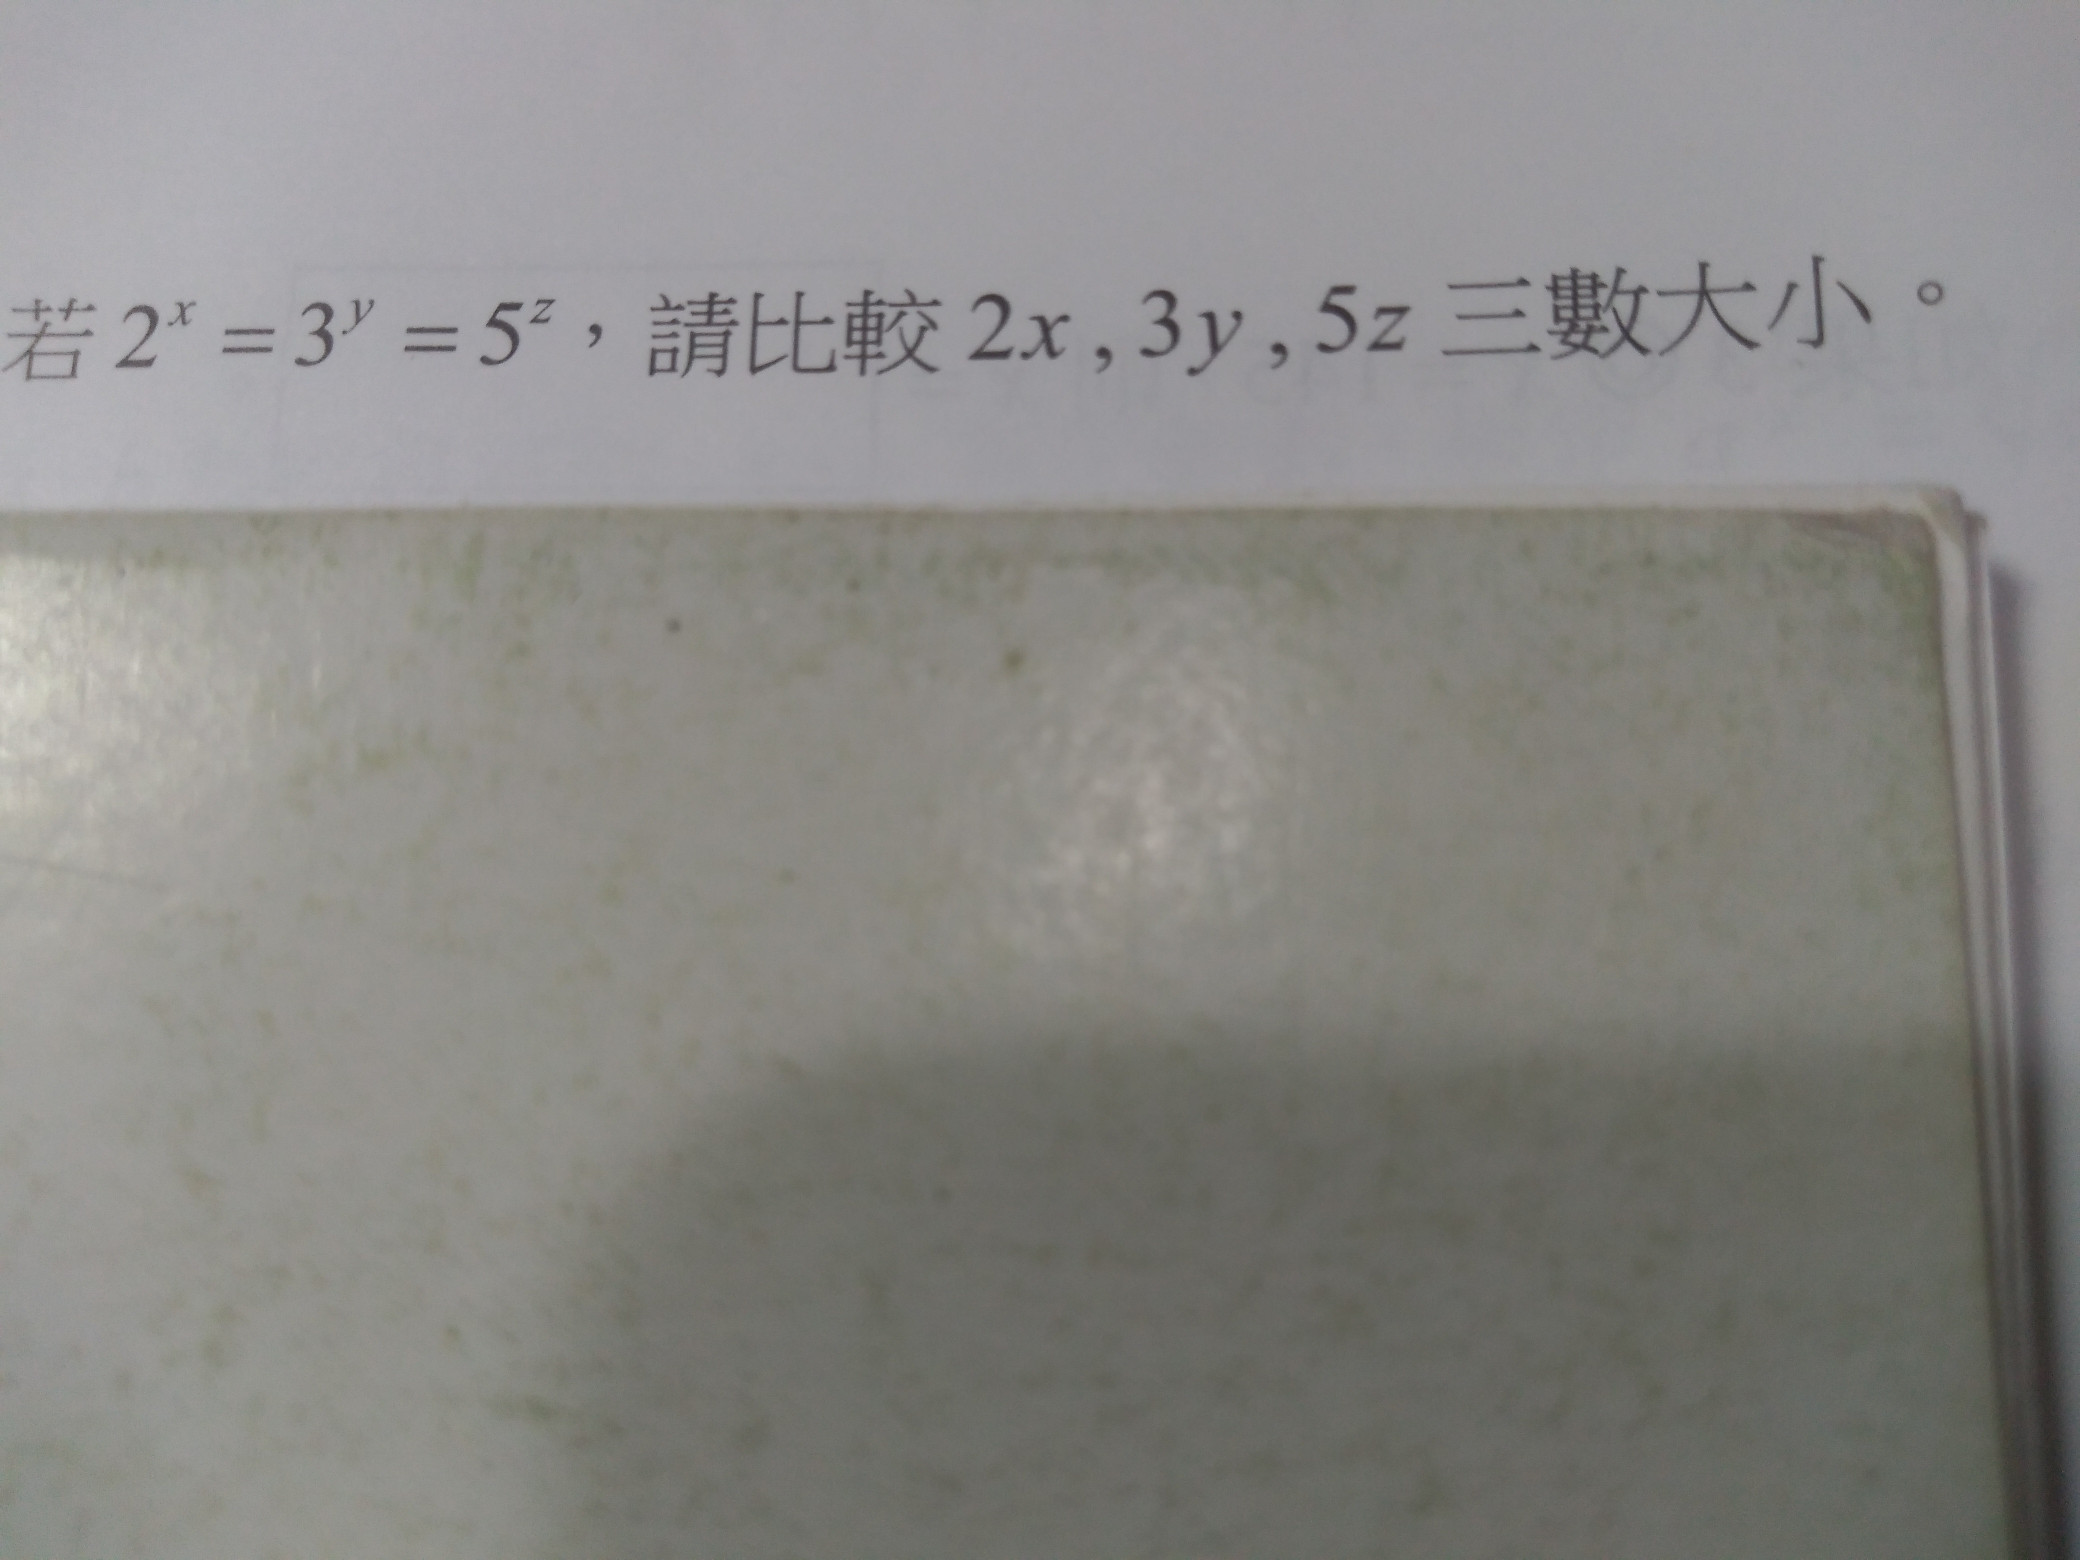 若 2^x = 3^y = 5^z，請比較 2x , 3y , 5z 三數大小。